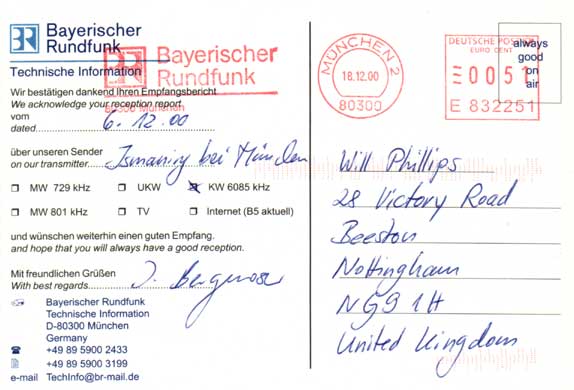 Bayerischer
Rundfunk
Technische Information
Bayerischer
Rundfunk
80300 München
Wir bestätigen dankend Ihren Empfangsbericht
We acknowledge your reception report
vom
dated 6. 12. 00
über unseren Sender
on our transmitter Ismaning bei München
MW 729 kHz UKW KW 6085 kHz
MW 801 kHz TV Internet (B5 aktuell)
und wünschen weiterhin einen guten Empfang.
and hope that you will always have a good reception.
Mit freundlichen Grüßen
With best regards
Bayerischer Rundfunk
Technische Information
D-80300 München
Germany
+49 89 5900 2433
+49 89 5900 3199
e-mail TechInfo@br-mail.de
MÜNCHEN 2
18.12.00
80300
DEUTSCHE POST AG
EURO CENT
0051
E 832251
always
good
on
air
Will Phillips
28 Victory Road
Beeston
Nottingham
NG9 1H
United Kingdom